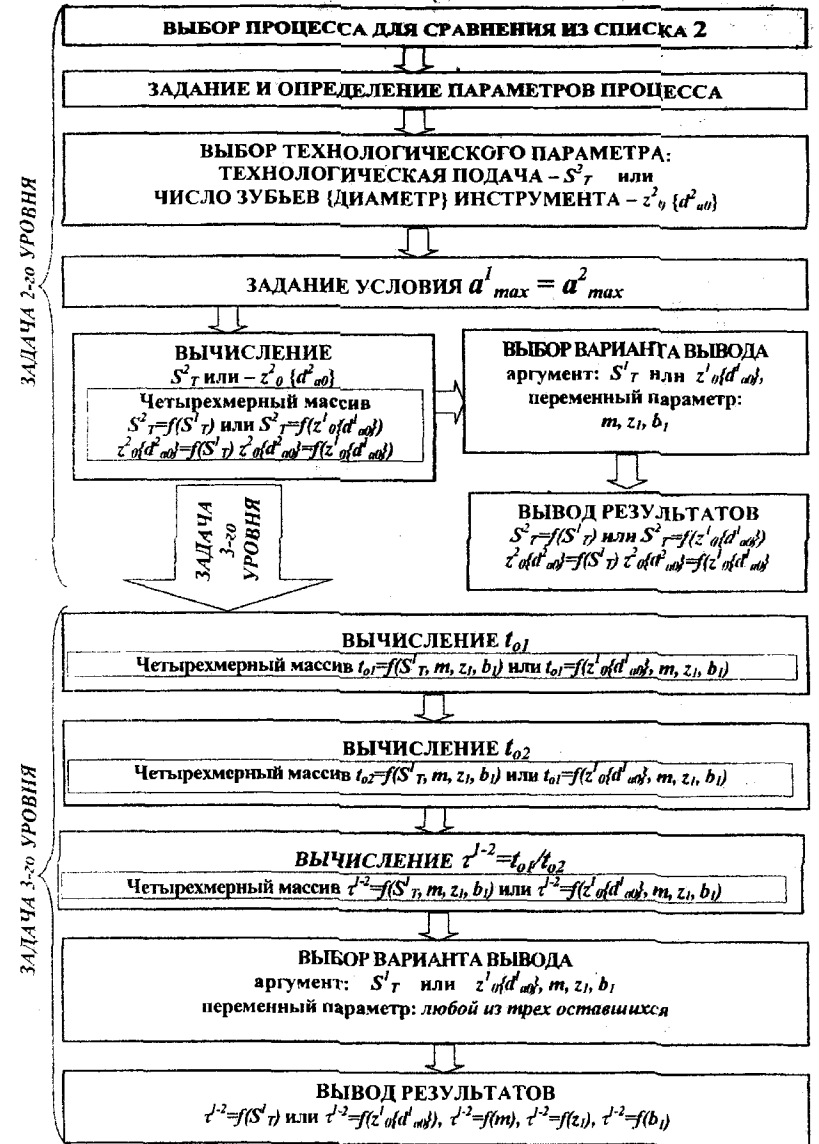 ВЫБОР ПРОЦЕССА ДЛЯ СРАВНЕНИЯ ИЗ СПИСКА 2
ЗАДАНИЕ И ОПРЕДЕЛЕНИЕ ПАРАМЕТРОВ ПРОЦЕССА
ВЫБОР ТЕХНОЛОГИЧЕСКОГО ПАРАМЕТРА:
ТЕХНОЛОГИЧЕСКАЯ ПОДАЧА – S²_T или
ЧИСЛО ЗУБЬЕВ {ДИАМЕТР} ИНСТРУМЕНТА – z²₀ {d²_a0}
ЗАДАНИЕ УСЛОВИЯ a¹_max = a²_max
ЗАДАЧА 2-го УРОВНЯ
ВЫЧИСЛЕНИЕ
S²_T или – z²₀ {d²_a0}
Четырехмерный массив
S²_T=f(S¹_T) или S²_T=f(z¹₀{d¹_a0})
z²₀{d²_a0}=f(S¹_T) z²₀{d²_a0}=f(z¹₀{d¹_a0}
ВЫБОР ВАРИАНТА ВЫВОДА
аргумент: S¹_T или z¹₀{d¹_a0},
переменный параметр:
m, z₁, b₁
ВЫВОД РЕЗУЛЬТАТОВ
S²_T=f(S¹_T) или S²_T=f(z¹₀{d¹_a0})
z²₀{d²_a0}=f(S¹_T) z²₀{d²_a0}=f(z¹₀{d¹_a0}
ЗАДАЧА
3-го
УРОВНЯ
ВЫЧИСЛЕНИЕ t_o1
Четырехмерный массив t_o1=f(S¹_T, m, z₁, b₁) или t_o1=f(z¹₀{d¹_a0}, m, z₁, b₁)
ВЫЧИСЛЕНИЕ t_o2
Четырехмерный массив t_o2=f(S¹_T, m, z₁, b₁) или t_o1=f(z¹₀{d¹_a0}, m, z₁, b₁)
ЗАДАЧА 3-го УРОВНЯ
ВЫЧИСЛЕНИЕ τ¹⁻²=t_o1/t_o2
Четырехмерный массив τ¹⁻²=f(S¹_T, m, z₁, b₁) или τ¹⁻²=f(z¹₀{d¹_a0}, m, z₁, b₁)
ВЫБОР ВАРИАНТА ВЫВОДА
аргумент: S¹_T или z¹₀{d¹_a0}, m, z₁, b₁
переменный параметр: любой из трех оставшихся
ВЫВОД РЕЗУЛЬТАТОВ
τ¹⁻²=f(S¹_T) или τ¹⁻²=f(z¹₀{d¹_a0}), τ¹⁻²=f(m), τ¹⁻²=f(z₁), τ¹⁻²=f(b₁)